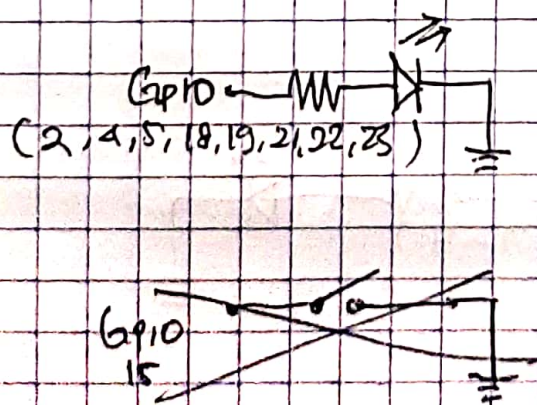 Gpio
(2, 4, 5, 18, 19, 21, 22, 23)
Gpio
15